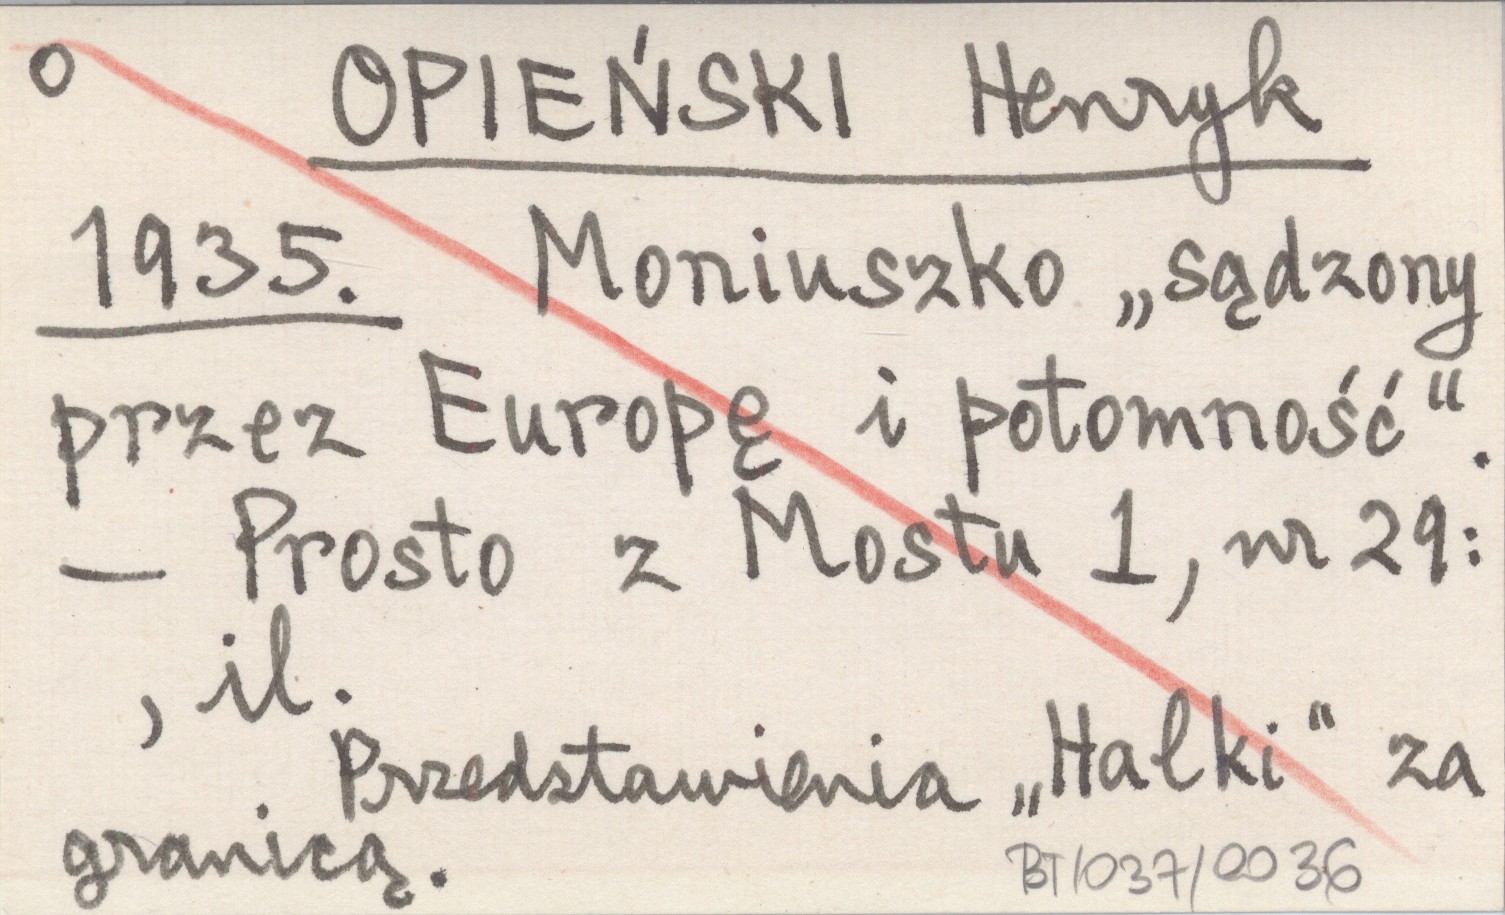 o OPIEŃSKI Henryk
1935. Moniuszko „sądzony
przez Europę i potomność“.
— Prosto z Mostu 1, nr 29:
, il.
Przedstawienia „Halki“ za
granicą.
BT/037/0036